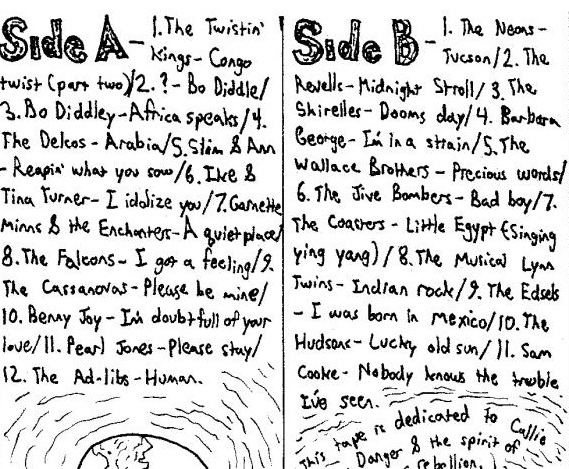 Side A - 1. The Twistin'
Kings - Congo
twist (part two)/2. ? - Bo Diddle/
3. Bo Diddley - Africa speaks/4.
The Delcos - Arabia/5. Slim & Ann
- Reapin' what you sow/6. Ike &
Tina Turner - I idolize you/7. Garnette
Minns & the Enchanters - A quiet place/
8. The Falcons - I got a feeling/9.
The Cassanovas - Please be mine/
10. Benny Joy - I'm doubtfull of your
love/11. Pearl Jones - Please stay/
12. The Ad-libs - Human.
Side B - 1. The Neons -
Tucson/2. The
Revells - Midnight Stroll/3. The
Shirelles - Dooms day/4. Barbara
George - I'm in a strain/5. The
Wallace Brothers - Precious words/
6. The Jive Bombers - Bad boy/7.
The Coasters - Little Egypt (Singing
ying yang)/8. The Musical Lynn
Twins - Indian rock/9. The Edsels
- I was born in Mexico/10. The
Hudsons - Lucky old sun/11. Sam
Cooke - Nobody knows the trouble
I've seen.
This tape is dedicated to Callie
Danger & the spirit of
rebellion.